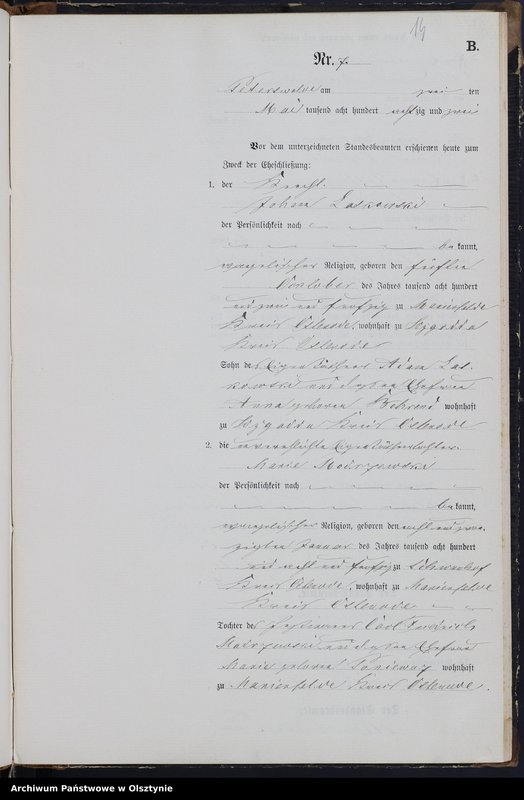 14
B.
Nr. 7.
Peterswalde am zwei ten
Mai tausend acht hundert achtzig und zwei
Vor dem unterzeichneten Standesbeamten erschienen heute zum
Zweck der Eheschließung:
1. der Knecht
Johann Laskowski
der Persönlichkeit nach
bekannt,
evangelischer Religion, geboren den fünften
October des Jahres tausend acht hundert
fünfzig zu Marienfelde
Kreis Osterode, wohnhaft zu
Kreis Osterode
Sohn des Eigenkäthners Adam Las-
kowski und dessen Ehefrau
Anna geborene Behrend wohnhaft
zu Kreis Osterode
2. die unverehelichte
Marie
der Persönlichkeit nach
bekannt,
evangelischer Religion, geboren den acht und zwan-
zigsten Januar des Jahres tausend acht hundert
acht und fünfzig zu
Kreis Osterode, wohnhaft zu Marienfelde
Kreis Osterode
Tochter des Carl Friedrich
und dessen Ehefrau
Marie geborene wohnhaft
zu Marienfelde Kreis Osterode.
Archiwum Państwowe w Olsztynie